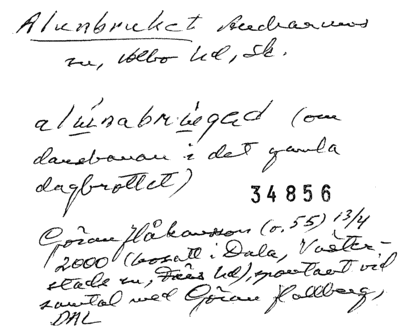 Alunbruket Andrarums
sn, Albo hd, Sk.
alúnabrúged (om
dansbanan i det gamla
dagbrottet)
34856
Göran Håkansson (o. 55) 13/4
2000 (bosatt i Dala, Väster-
stads sn, Färs hd), spontant vid
samtal med Göran Hallberg,
DAL